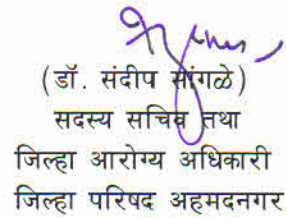 (डॉ. संदीप सांगळे)
सदस्य सचिव तथा
जिल्हा आरोग्य अधिकारी
जिल्हा परिषद अहमदनगर